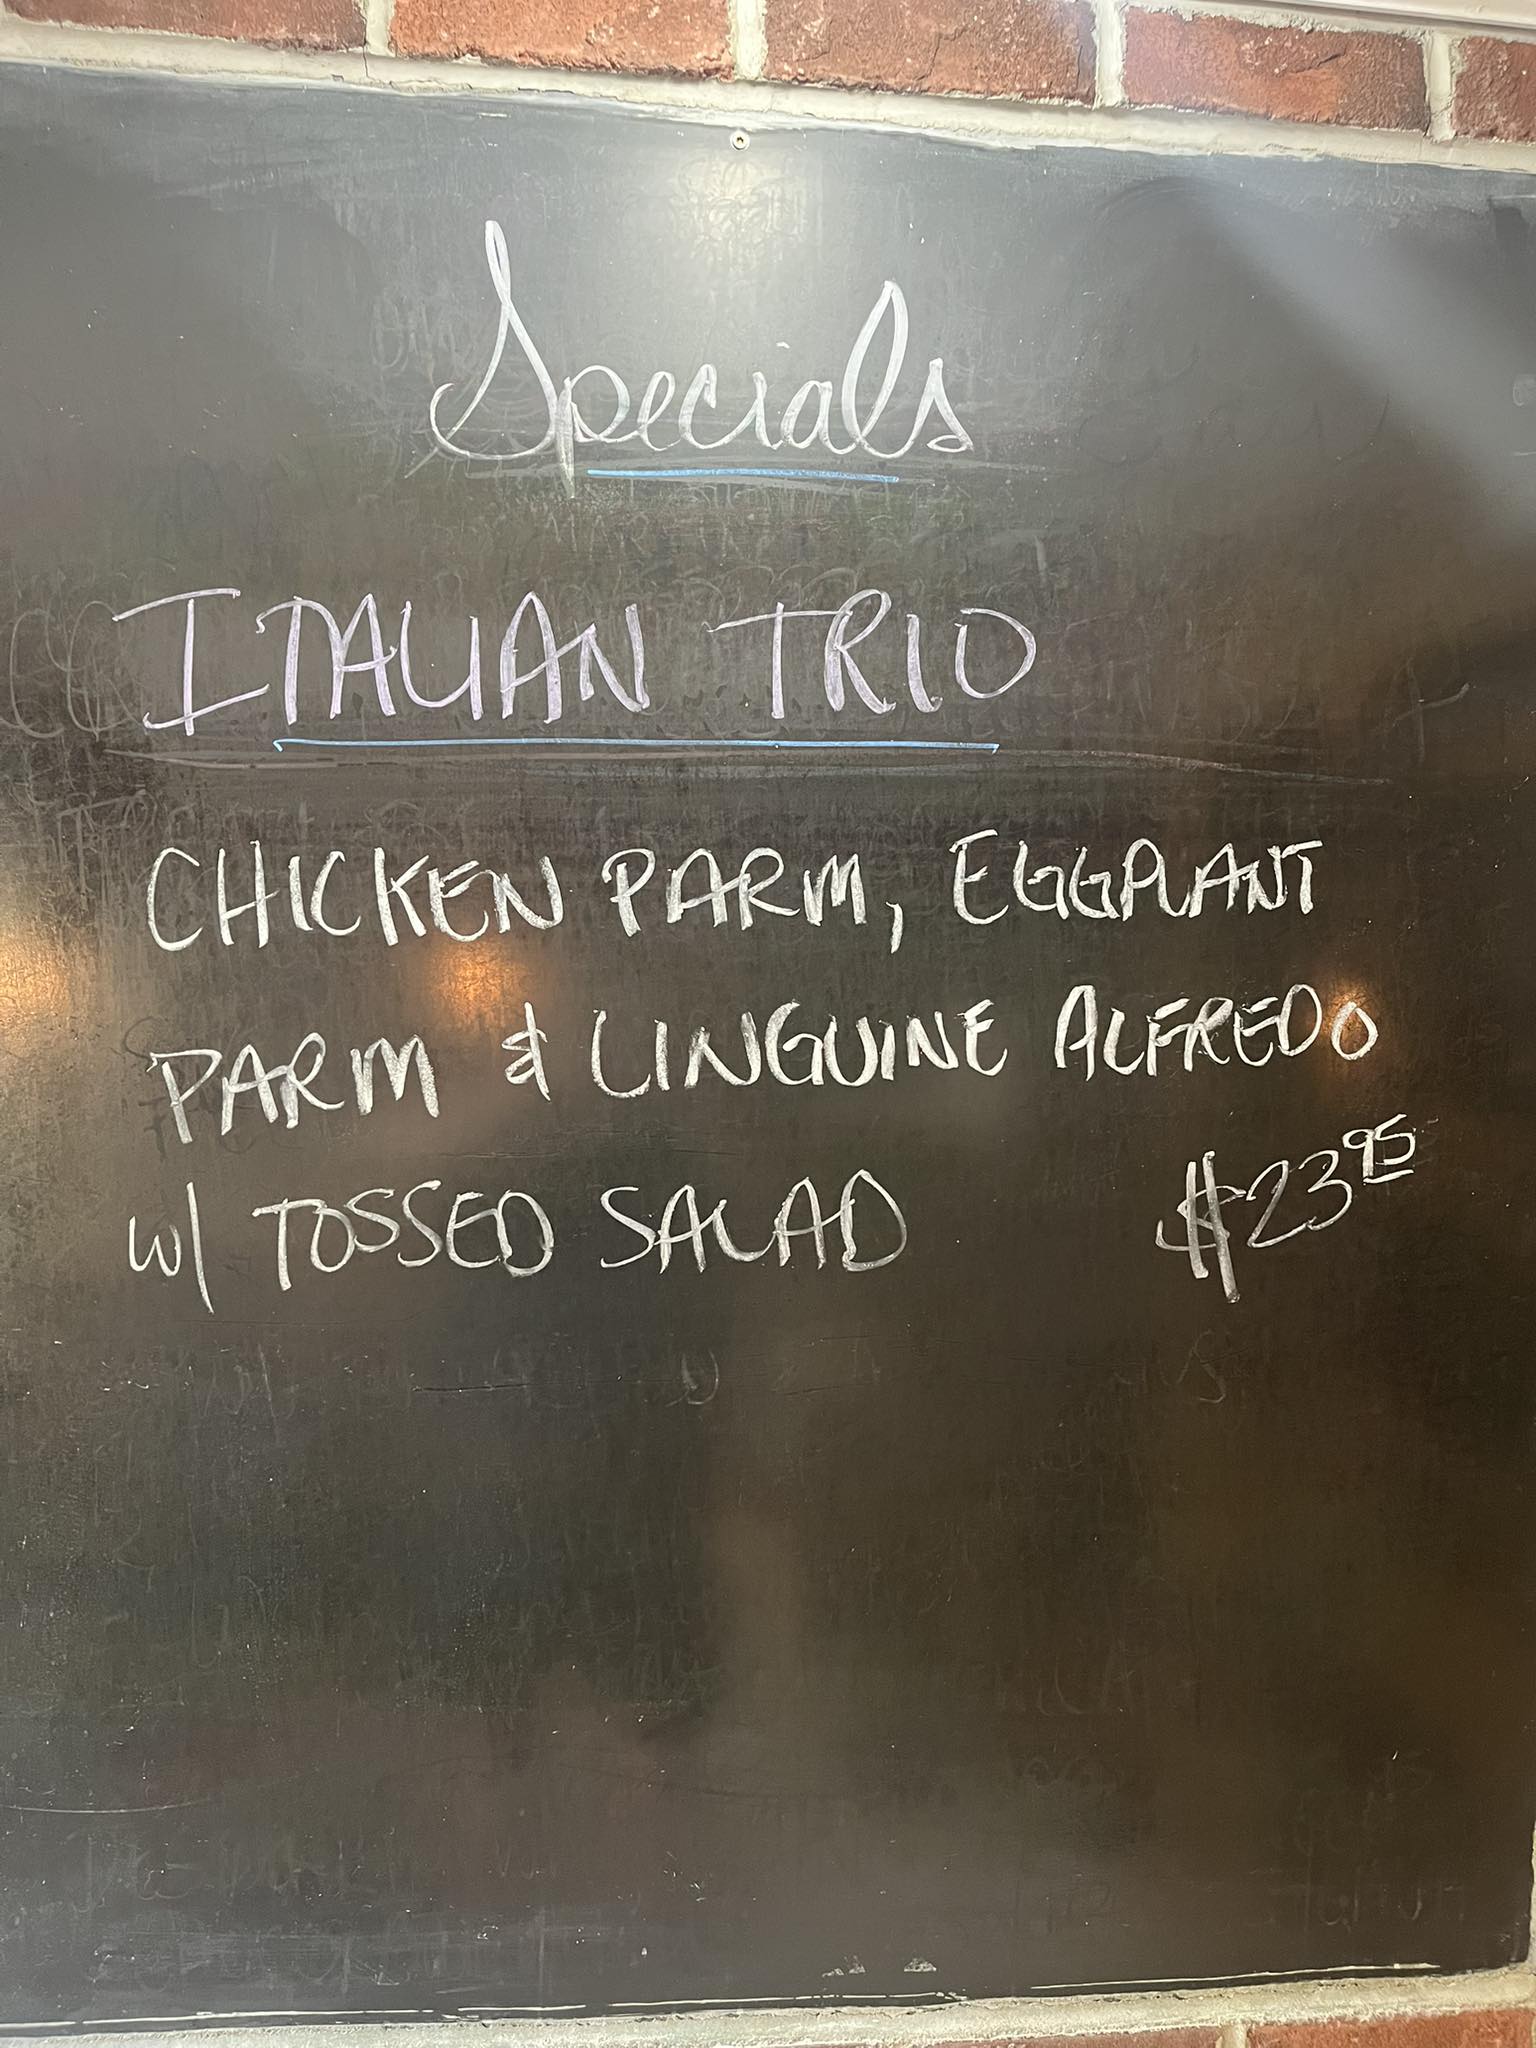 Specials
ITALIAN TRIO
CHICKEN PARM, EGGPLANT
PARM & LINGUINE ALFREDO
w/ TOSSED SALAD $23.95